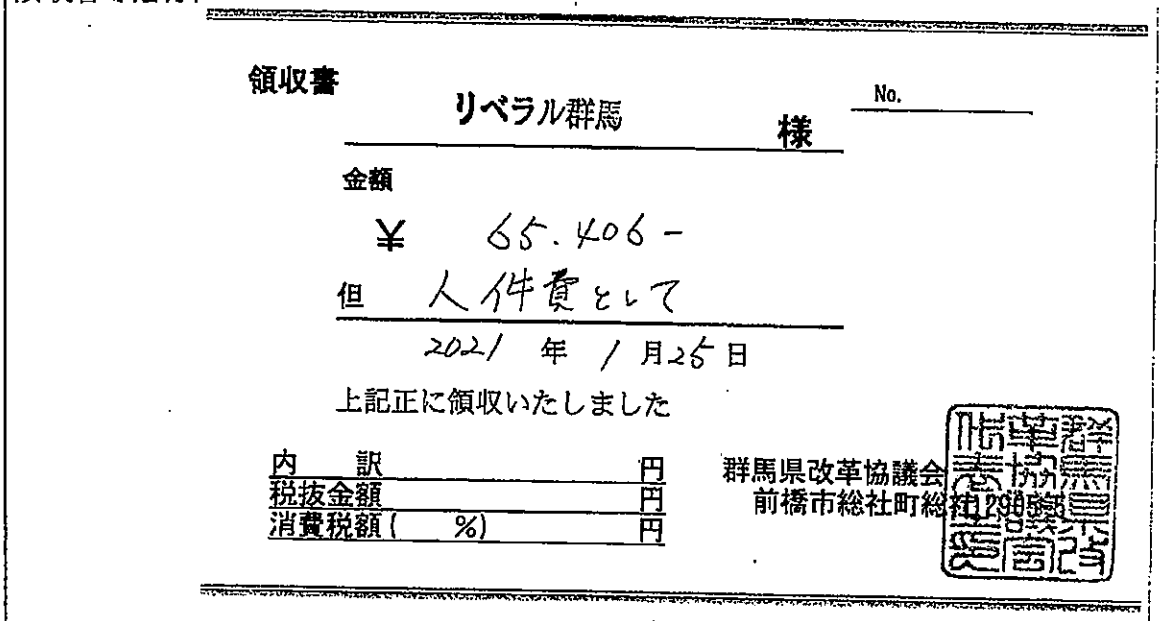 領収書
リベラル群馬 様
No.
金額
¥ 65.406-
但 人件費として
2021 年 1 月25 日
上記正に領収いたしました
内 訳 円
税抜金額 円
消費税額( %) 円
群馬県改革協議会
前橋市総社町総社